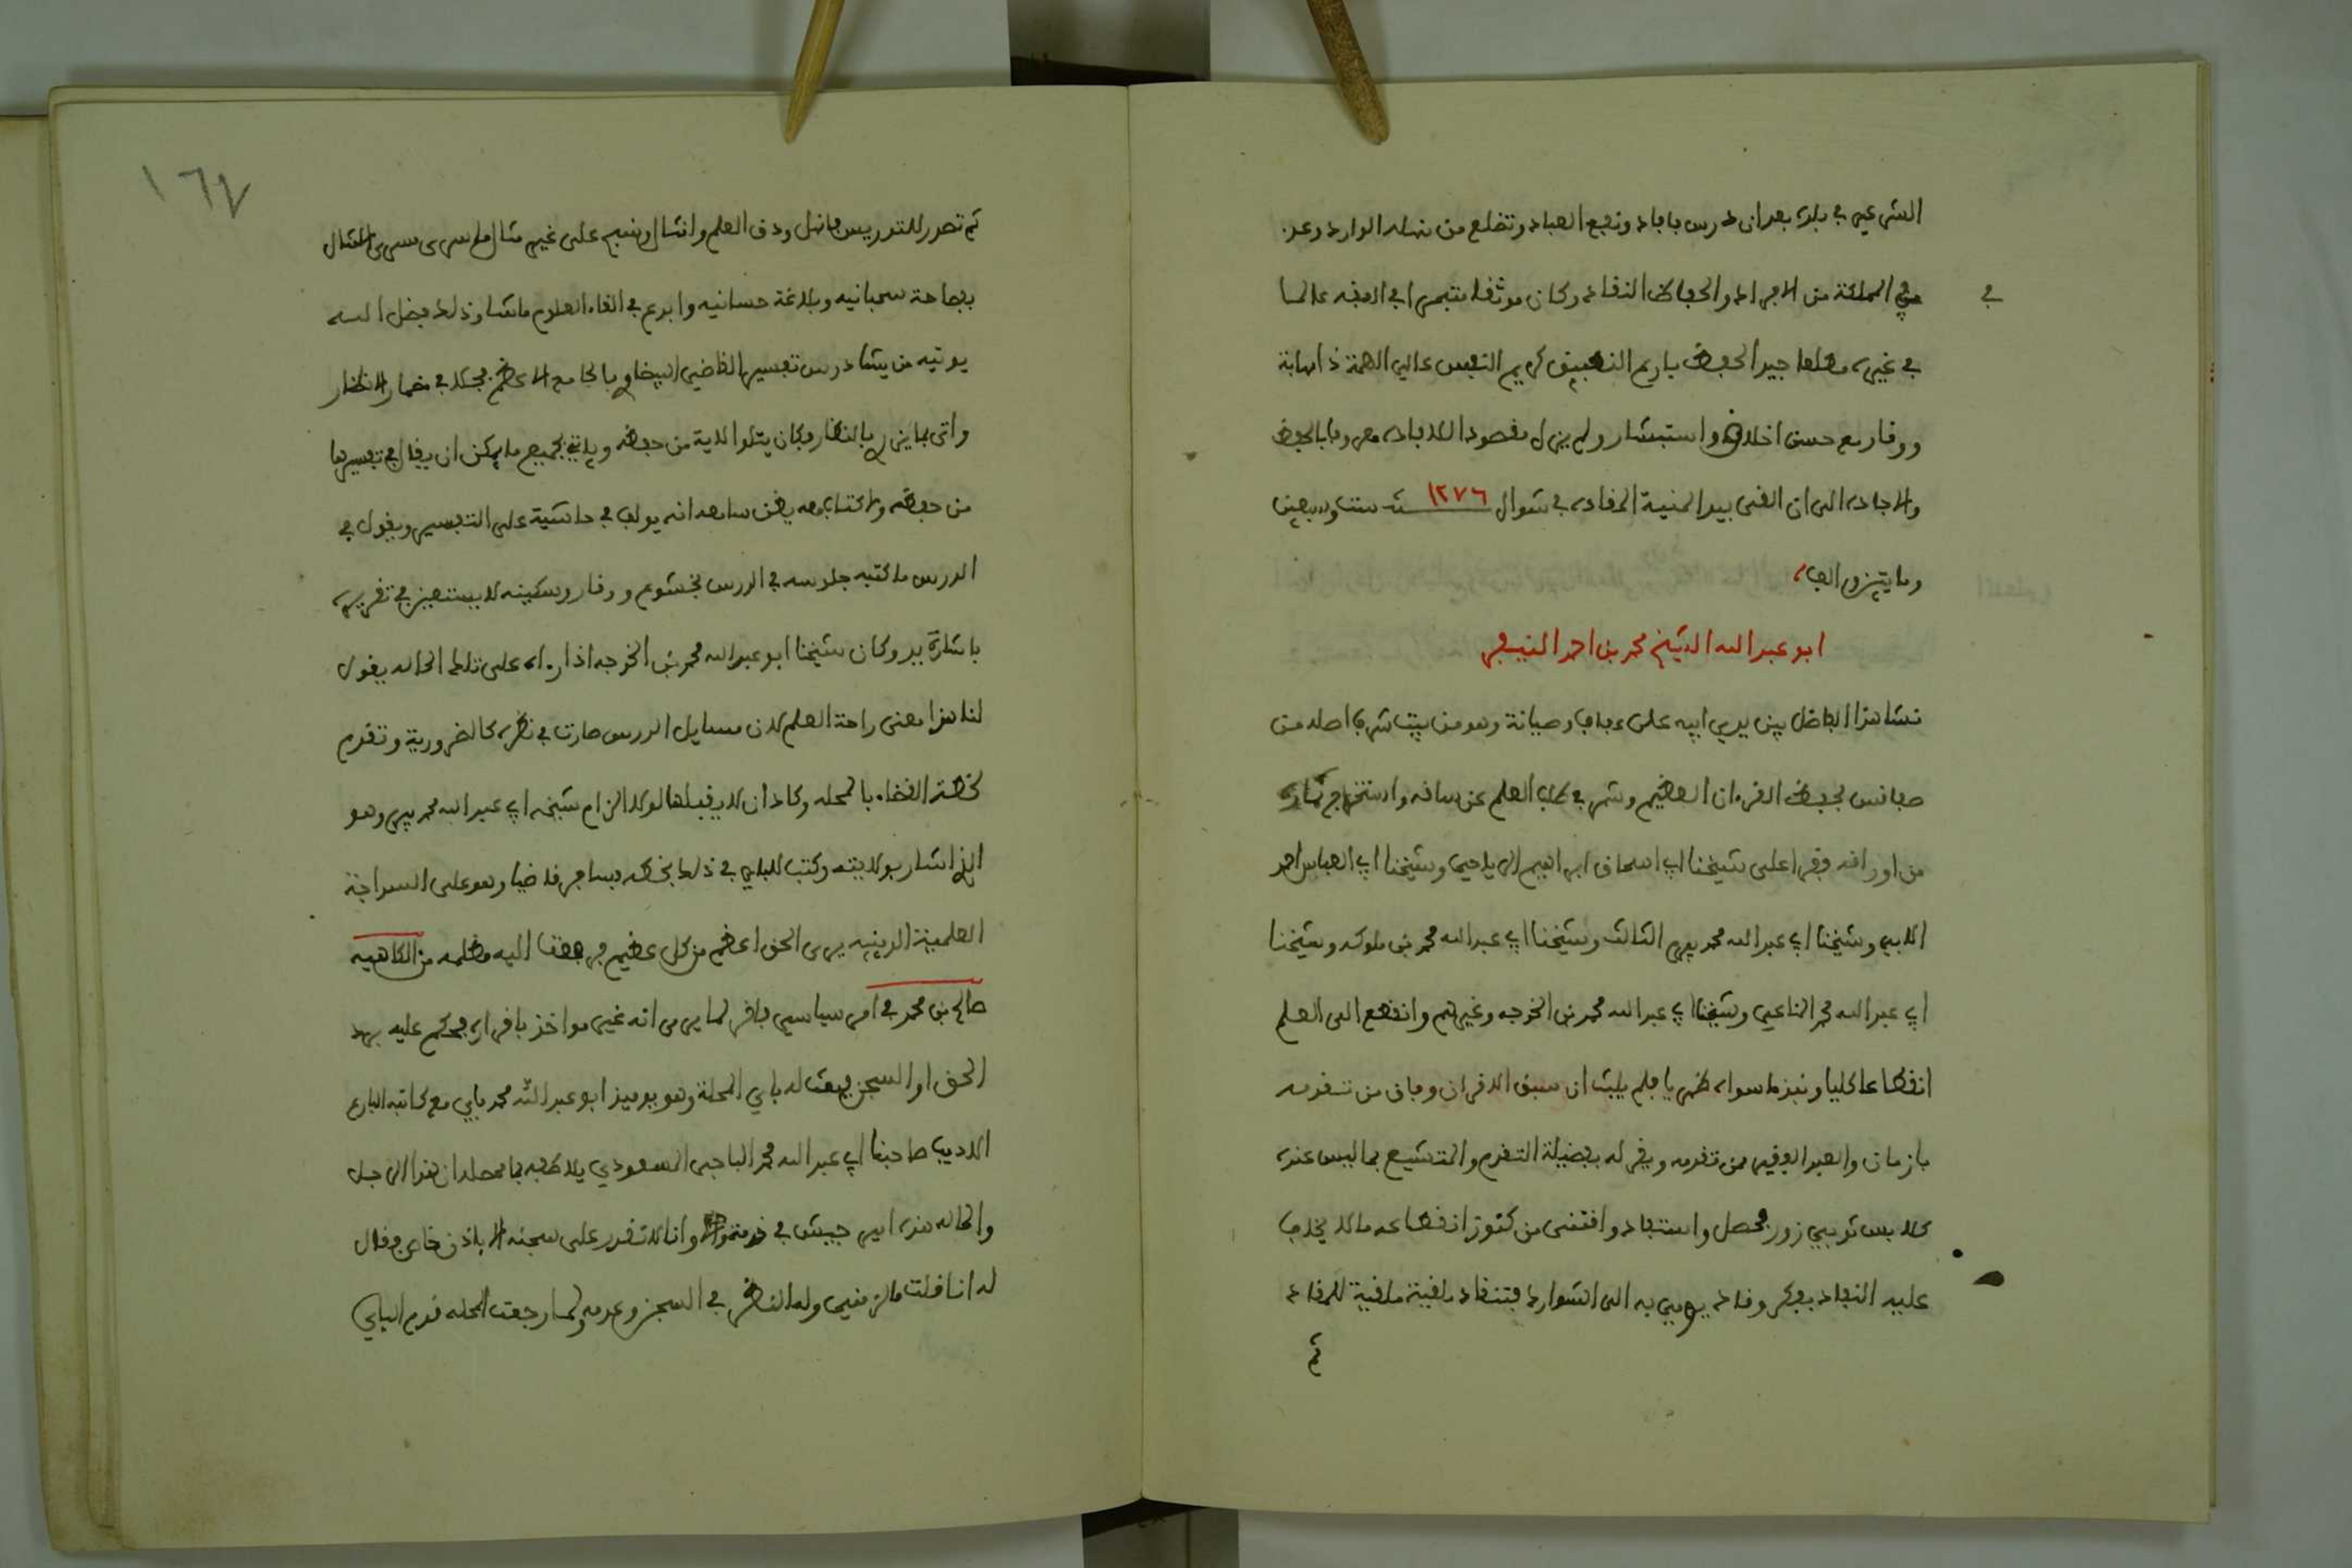 الشرعي في بلده بعد ان درس بافاد ونفع العباد وتضلع من نهله الوارد وعد
في
في المملكة من الافراد والحفاظ النقاد وكان موثقا متبحرا في الفقه عالما
في غيره مطلعا جيد الحفظ بارع التطبيق كريم النفس عالي الهمة ذا مهابة
ووقار مع حسن اخلاق واستبشار ولم يزل مقصودا للافاده معروفا بالحفظ
والاجاده الى ان القى بيد المنية المقاده في شوال سنة ١٢٧٦ ست وسبعين
ومايتين والف
ابو عبد الله الشيخ محمد بن احمد النيفر
نشا هذا الفاضل بين يدي ابيه على عفاف وصيانة وهو من بيت شرف اصله من
صفاقس فحفظ القرءان العظيم وشمر في طلب العلم عن ساقه واستخرج ثماره
من اوراقه وقرا على شيخنا ابي اسحاق ابراهيم الرياحي وشيخنا ابي العباس احمد
الابي وشيخنا ابي عبد الله محمد بيرم الثالث وشيخنا ابي عبد الله محمد بن ملوكه وشيخنا
ابي عبد الله محمد المناعي وشيخنا ابي عبد الله محمد بن الخوجه وغيرهم وانقطع الى العلم
انقطاعا كليا ونبذ ما سواه ظهريا فلم يلبث ان سبق الاقران وفاق من تقدمه
بازمان والعبد الفقير ممن تقدمه ويقر له بفضيلة التقدم والمتشبع بما ليس عنده
كلابس ثوبي زور فحصل واستفاد واقتنى من كنوز انقطاعه ما لا يخاف
عليه النفاد بفكر وقاد يومي به الى الشوارد فتنقاد ملقية المقاد
ثم
١٦٧
ثم تصدر للتدريس فانهل ودق العلم وانثال ونسج على غير مثال
بفصاحة سحبانيه وبلاغة حسانيه وابدع في القاء العلوم ما شا وذلك فضل الله
يوتيه من يشا درس تفسير القاضي البيضاوي بالجامع الاعظم فجلا في مضمار الانظار
واتى بما يزري بالنضار وكان يتلو الاية من حفظه وياتي بجميع ما يمكن ان يقال في تفسيرها
من حفظه ولا كتاب معه يظن سامعه انه يولف في حاشية على التفسير ويقول في
الدرس ما كتبه جلوسه في الدرس بخشوع ووقار وسكينه لا يستعين في تقريره
باشارة يد وكان شيخنا ابو عبد الله محمد بن الخوجه اذا رءاه على تلك الحاله يقول
لنا هذا معنى راحة العلم لان مسايل الدرس صارت في نظره كالضرورية وتقدم
لخطة القضاء بالمحله وكاد ان لا يقبلها لولا الزام شيخه ابي عبد الله محمد بيرم وهو
الذي اشار بولايته وكتب للباي في ذلك بخطه فسافر قاضيا وهو على السذاجة
العلمية الدينيه يرى الحق اعظم من كل عظيم فرفعت اليه مظلمه من الكاهيه
صالح بن محمد في امر سياسي فاقر لما يرى انه غير مواخذ باقراره فحكم عليه برد
الحق او السجن فبعث له باي المحلة وهو يوميذ ابو عبد الله محمد باي مع كاتبه البارع
الاديب صاحبنا ابي عبد الله محمد الباجي المسعودي يلاطفه بما محصله ان هذا الرجل
والحاله هذه امير جيش في خدمة وانا لا نقدر على سجنه الا باذن خاص فقال
له انا قلت ما لزمني وله النظر في السجن وعدمه ولما رجعت المحله قدم الباي